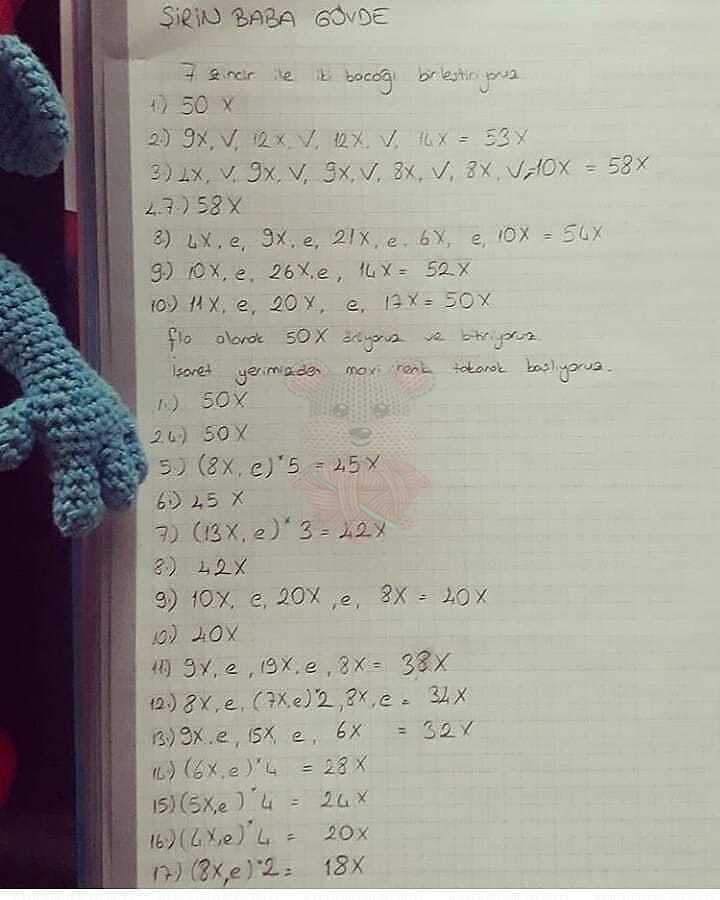 ŞİRİN BABA GÖVDE
7 zincir ile iki bacağı birleştiriyoruz
1.) 50 X
2.) 9X, V, 12X, V, 12X, V, 14X = 53X
3.) 4X, V, 9X, V, 9X, V, 8X, V, 8X, V, 10X = 58X
4.7.) 58X
8.) 4X, e, 9X, e, 21X, e, 6X, e, 10X = 54X
9.) 10X, e, 26X, e, 14X = 52X
10.) 11X, e, 20X, e, 17X = 50X
flo olarak 50X örüyoruz ve bitiriyoruz.
İşaret yerimizden mavi renk takarak başlıyoruz.
1.) 50X
2.4.) 50X
5.) (8X, e)*5 = 45X
6.) 45 X
7.) (13X, e)* 3 = 42X
8.) 42X
9.) 10X, e, 20X, e, 8X = 40X
10.) 40X
11.) 9X, e, 19X, e, 8X = 38X
12.) 8X, e, (7X,e)*2, 8X, e = 34X
13.) 9X, e, 15X, e, 6X = 32X
14.) (6X, e)*4 = 28X
15.) (5X, e)*4 = 24X
16.) (4X, e)*4 = 20X
17.) (8X, e)*2 = 18X